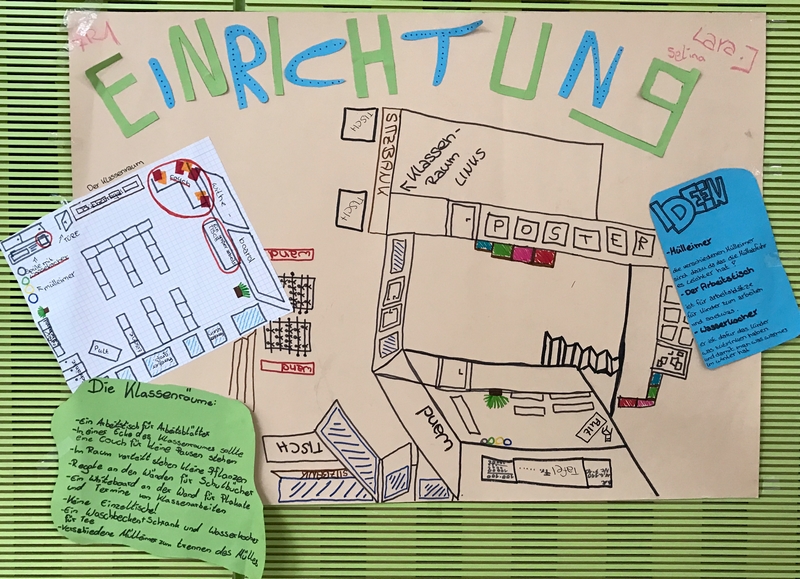 EINRICHTUNG
Lara :]
Selina
TISCH
TISCH
SITZBANK
Klassen-
RAUM
LINKS
POSTER
wand
wand
Wand
TISCH
SITZBANK
Tafel
Der Klassenraum
Couch
TÜRE
Mülleimer
board
Pult
IDEEN
-Mülleimer
die verschiedenen Mülleimer
sind dazu da das die Müllabfuhr
es leichter hat
-Der Arbeitstisch
ist für Arbeitsblätter
für Kinder zum arbeiten
und sowas.
-Wasserkocher
er ist dafür das Kinder
was zu trinken haben
und damit man was warmes
im Winter hat
Die Klassenräume:
-Ein Arbeitstisch für Arbeitsblätter
-In einer Ecke des Klassenraumes sollte
eine Couch für kleine Pausen stehen
-Im Raum verteilt stehen kleine Pflanzen
-Regale an den Wänden für Schulbücher
-Ein Whiteboard an der Wand für Plakate
und Termine von Klassenarbeiten
-Keine Einzeltische!
-Ein Waschbecken+Schrank und Wasserkocher
für Tee
-Verschiedene Mülltonnen zum trennen des Mülles